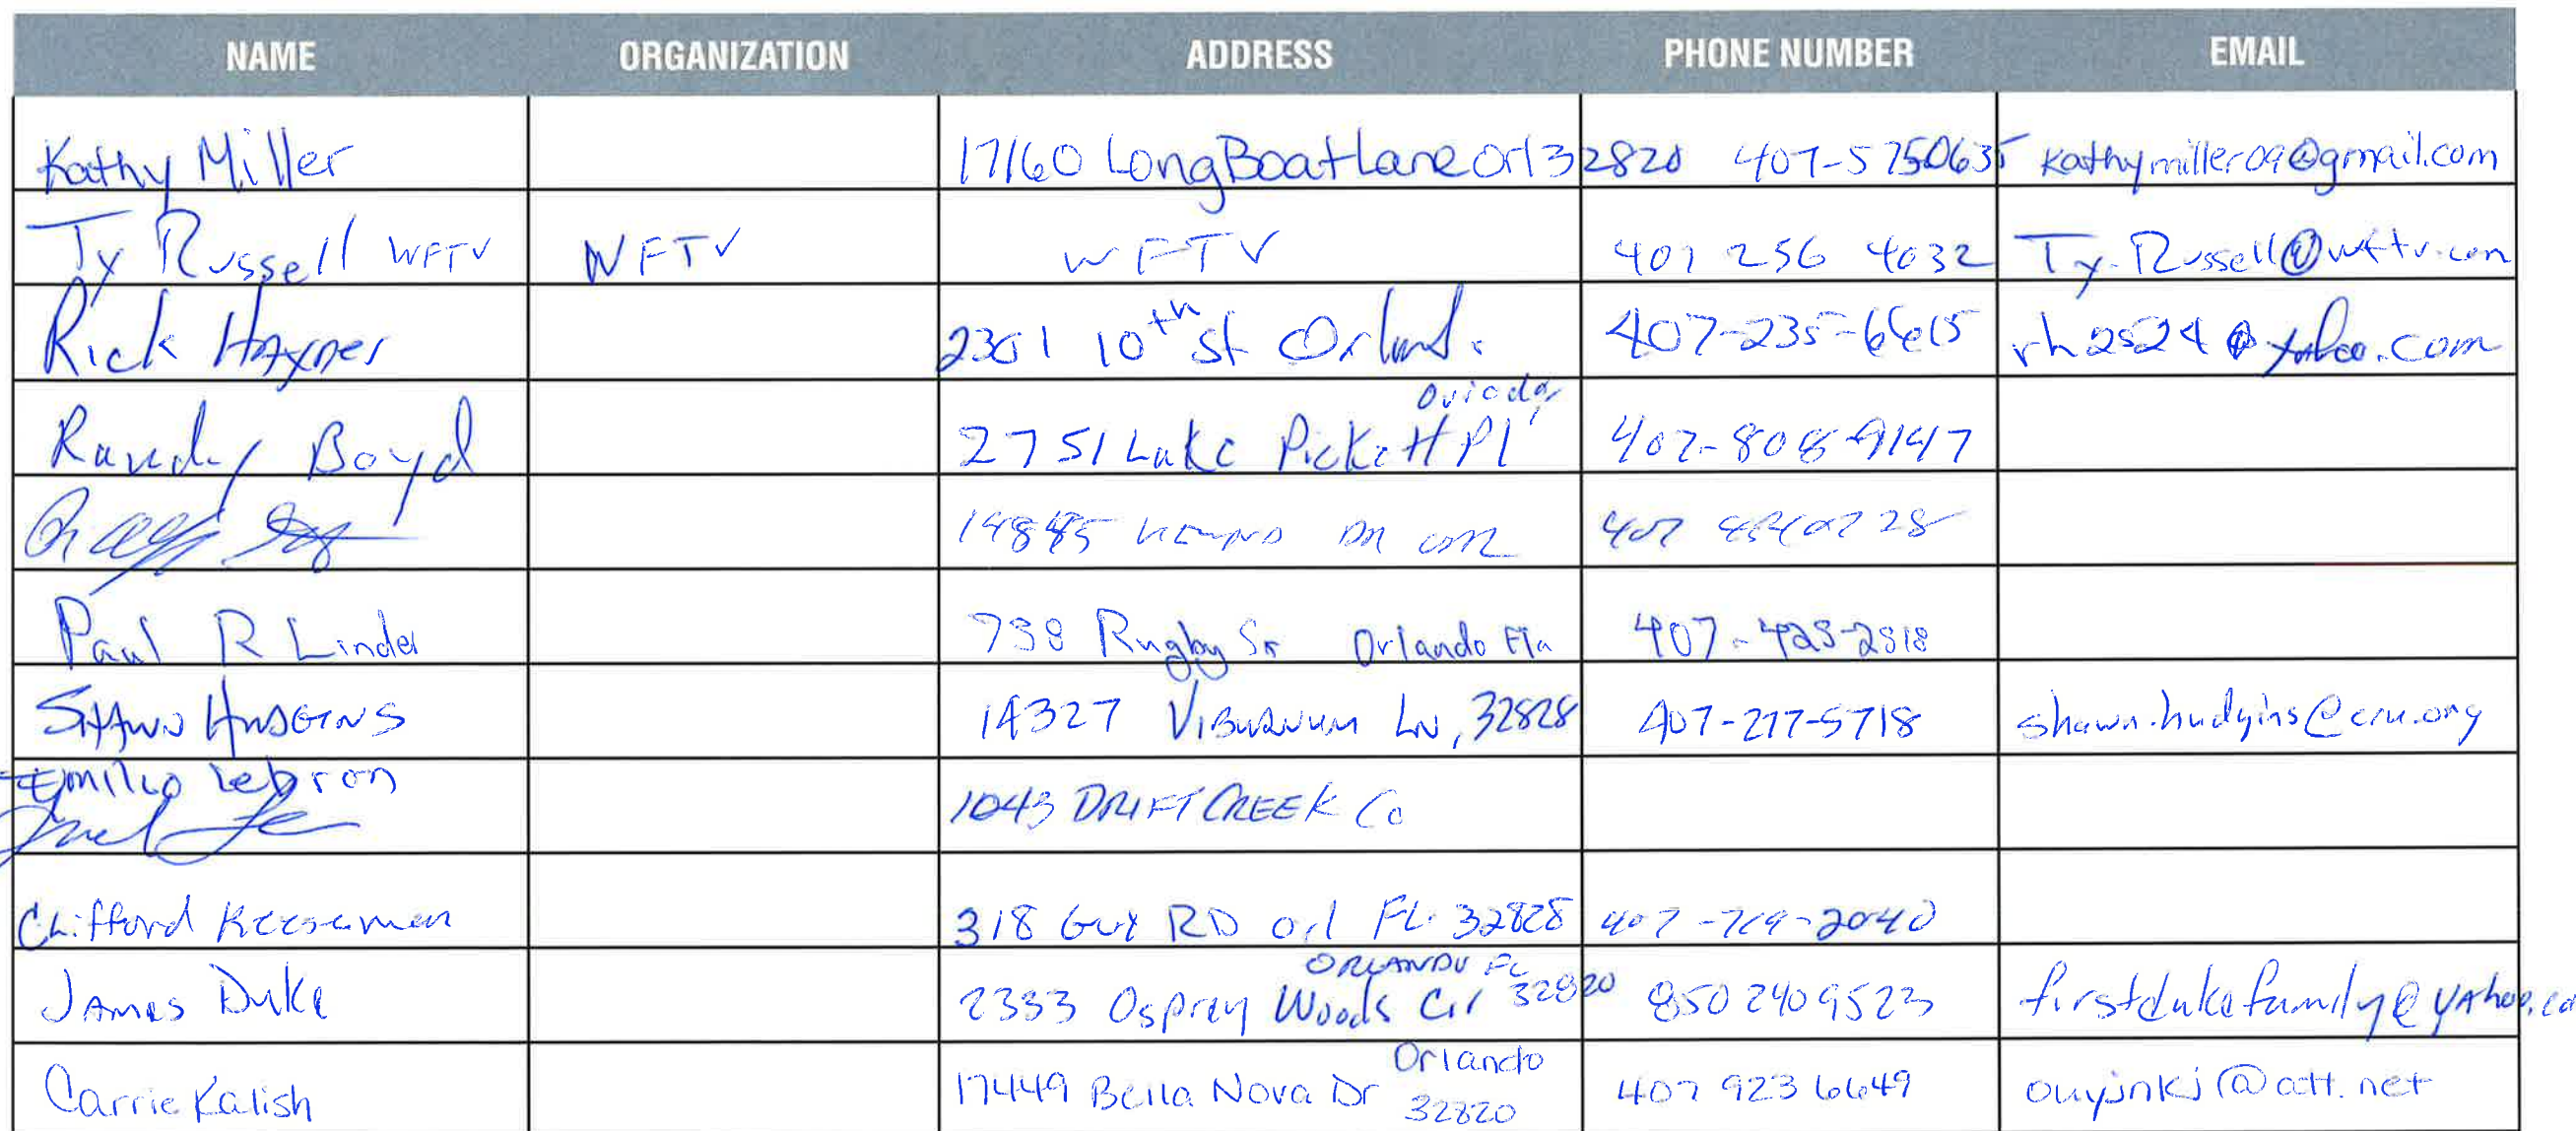 NAME ORGANIZATION ADDRESS PHONE NUMBER EMAIL
Kathy Miller 17160 Long Boat Lane Orl 32820 407-5750635 kathymiller09@gmail.com
Ty Russell WFTV WFTV WFTV 407 256 4032 Ty.Russell@wftv.com
Rick Haynes 2301 10th St 407-235-6615 rh2524@yahoo.com
Oviedo,
Randy Boyd 2751 Lake Pickett Pl 407-808-9147
14885 DR 407
Paul R Linder 738 Rugby St Orlando Fla 407-423-2818
SHAWN HUDGINS 14327 VIBURNUM LN, 32828 407-277-5718 shawn.hudgins@cru.org
Emilio Lebron
1043 DRIFT CREEK
Clifford 318 Guy RD orl FL 32828 407-719-2040
ORLANDO FL
JAMES Duke 2333 Osprey Woods Cir 32820 850 2409523 firstdukefamily@yahoo.co
Orlando
Carrie Kalish 17449 Bella Nova Dr 407 923 6649 ouyinkj@att.net
32820